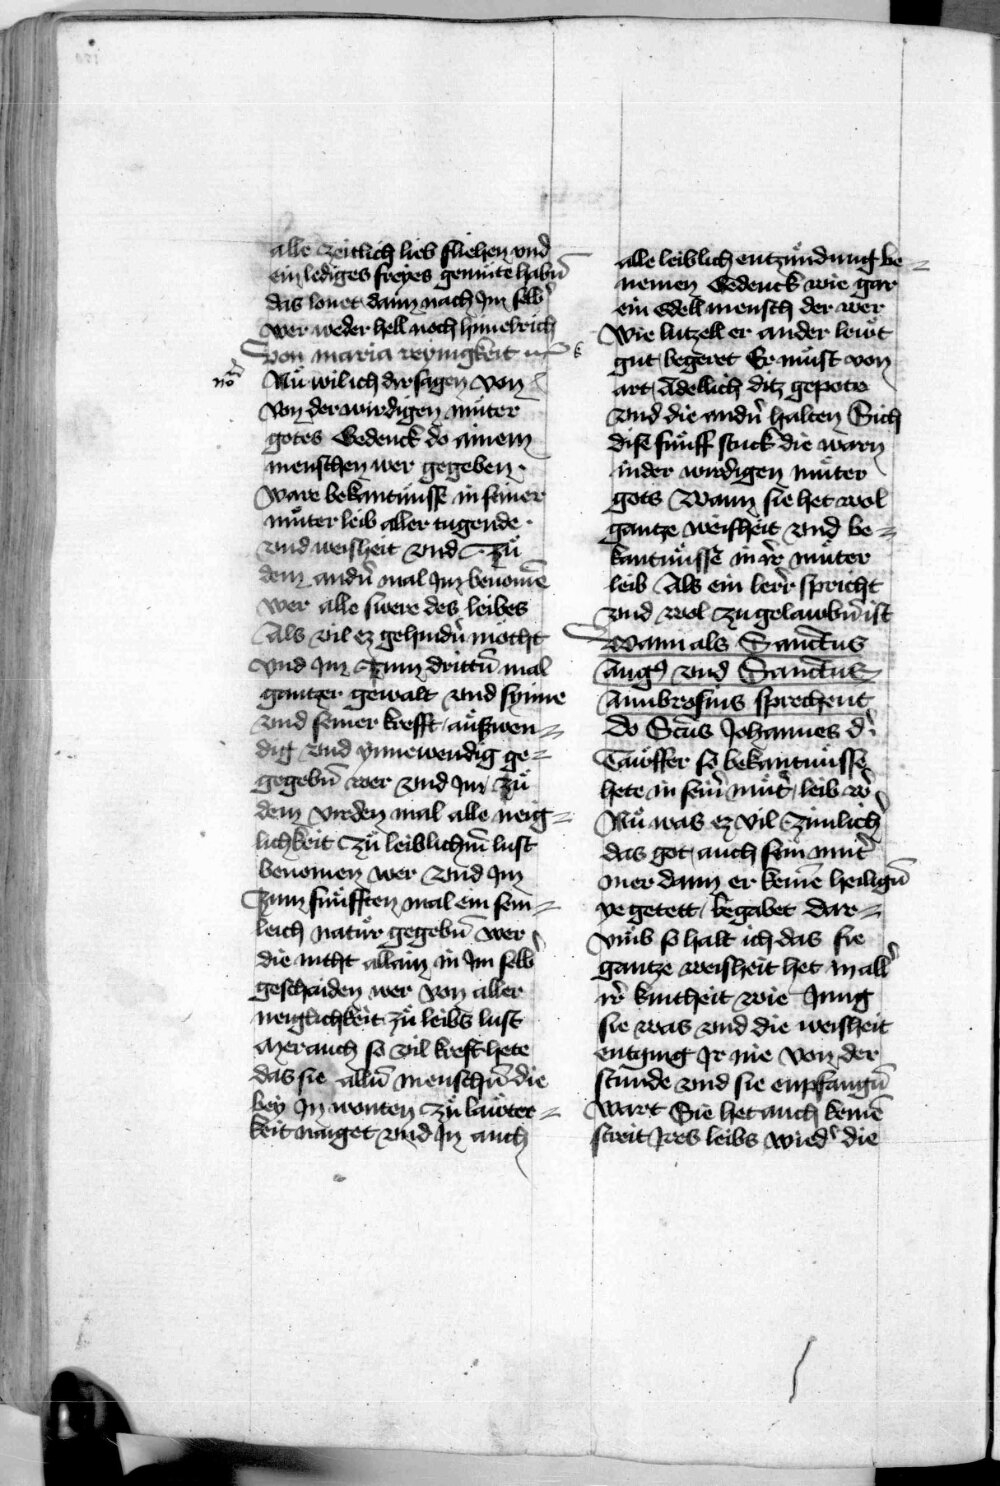 alle zeitlich lieb fliehen vnd
ein lediges freyes gemüte habn̄
das lonet dann nach Im selb
wer weder hell noch himelrich
Von maria reynigkeit
no Nu wil ich dir sagen von
von der wirdigen muͦter
gotes Gedenck do ainem
menschen wer gegeben
Ware bekantnüsse in seiner
muͦter leib aller tugende
vnd weisheit vnd Zuͦ
dem andn̄ mal Im benomē
wer alle swere des leibes
Als vil ez gehindn̄ möcht
vnd Im Zum drittn̄ mal
gantzer gewalt vnd synne
vnd seiner krefft außwen=
dig vnd ynnewendig ge=
gegebn̄ wer vnd Im Zuͦ
dem virden mal alle neig=
lichkeit Zuͦ leiblichm̄ lust
benomen wer vnd Im
Zum fünfften mal ein sem=
leich natuͦr gegebn̄ wer
die nicht allain in Im selb
gescheiden wer von aller
neiglichkeit zuͦ leibs lust
Mer auch so vil kreft hete
das sie alln̄ menschn̄ die
bey In wonten Zuͦ lauter=
keit naiget vnd In auch
alle leiblich entzündung be=
nemen Gedenck wie gar
ein Edell mensch der wer
Wie lutzell er ander lewt
gut begeret Er müst von
art Adellich ditz gepote
vnd die andn̄ halten Sich
dise fünff stuck die warn
in der wirdigen muͦter
gots Wann sie het wol
gantze weisheit vnd be=
kantnüsse in ir̄ muͦter
leib Als ein lerr̄ spricht
vnd wol zu gelawbn̄ ist
Wann als Sanctus
Aug9 vnd Sanctus
Ambrosius sprechent
Do Sctūs Johannes d̄
Tauffer so bekantnüsse
hete in sein̄ muͦt̄ leib w̄
Nu was ez vil Zimlich
das got auch sein̄ mut̄
mer dann er keinē heilign̄
ye getett begabet dar=
vmb so halt ich das sie
gantze weisheit het in all̄
ir̄ kintheit wie Jung
sie was vnd die weisheit
entging Ir nie von der
stunde vnd sie enpfangn̄
wart Sie het auch keinē
streit Ires leibs wied̄ die